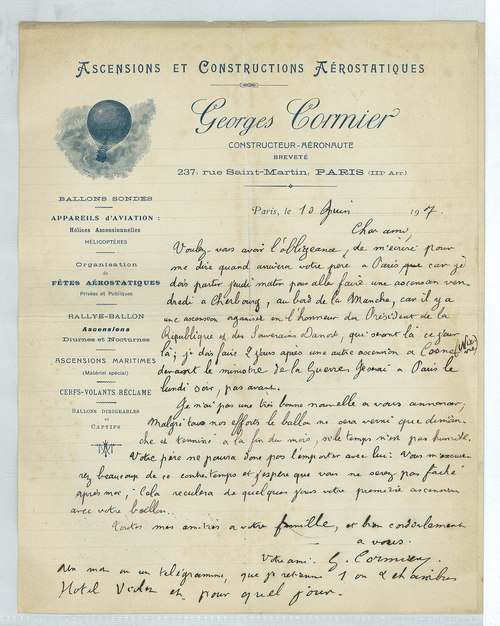 ASCENSIONS ET CONSTRUCTIONS AÉROSTATIQUES
Georges Cormier
CONSTRUCTEUR-AÉRONAUTE
BREVETÉ
237, rue Saint-Martin, PARIS (IIIe Arrt)
BALLONS SONDES
APPAREILS D'AVIATION :
Hélices Ascensionnelles
HÉLICOPTÈRES
Organisation
de
FÊTES AÉROSTATIQUES
Privées et Publiques
RALLYE-BALLON
Ascensions
Diurnes et Nocturnes
ASCENSIONS MARITIMES
(Matériel spécial)
CERFS-VOLANTS RÉCLAME
BALLONS DIRIGEABLES
ET
CAPTIFS
Paris, le 10 Juin 1907.
Cher ami,
Voulez-vous avoir l'obligeance, de m'écrire pour
me dire quand arrivera votre père à Paris que car je
dois partir jeudi matin pour aller faire une ascension ven-
dredi à Cherbourg, au bord de la Manche, car il y a
une ascension organisée en l'honneur du Président de la
République et des Souverains Danois, qui seront là ce jour
là; je dois faire 2 jours après une autre ascension à Cosne (Nièvre)
devant le ministre de la Guerre. Je serai à Paris le
lundi soir, pas avant.
Je n'ai pas une très bonne nouvelle a vous annoncer,
Malgré tous nos efforts le ballon ne sera verni que diman-
che et terminé à la fin du mois, si le temps n'est pas humide.
Votre père ne pourra donc pas l'emporter avec lui. Vous m'excuse-
rez beaucoup de ce contre temps et j'espère que vous ne serez pas faché
après moi; Cela reculera de quelques jours votre première ascension
avec votre ballon.
Toutes mes amitiés a votre famille, et bien cordialement
a vous.
Votre ami. G. Cormier
un mot ou un télégramme, que je retienne 1 ou 2 chambres
Hotel et pour quel jour.